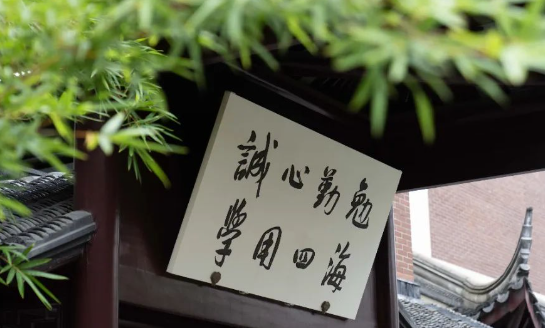 誠心勤勉
學用四海